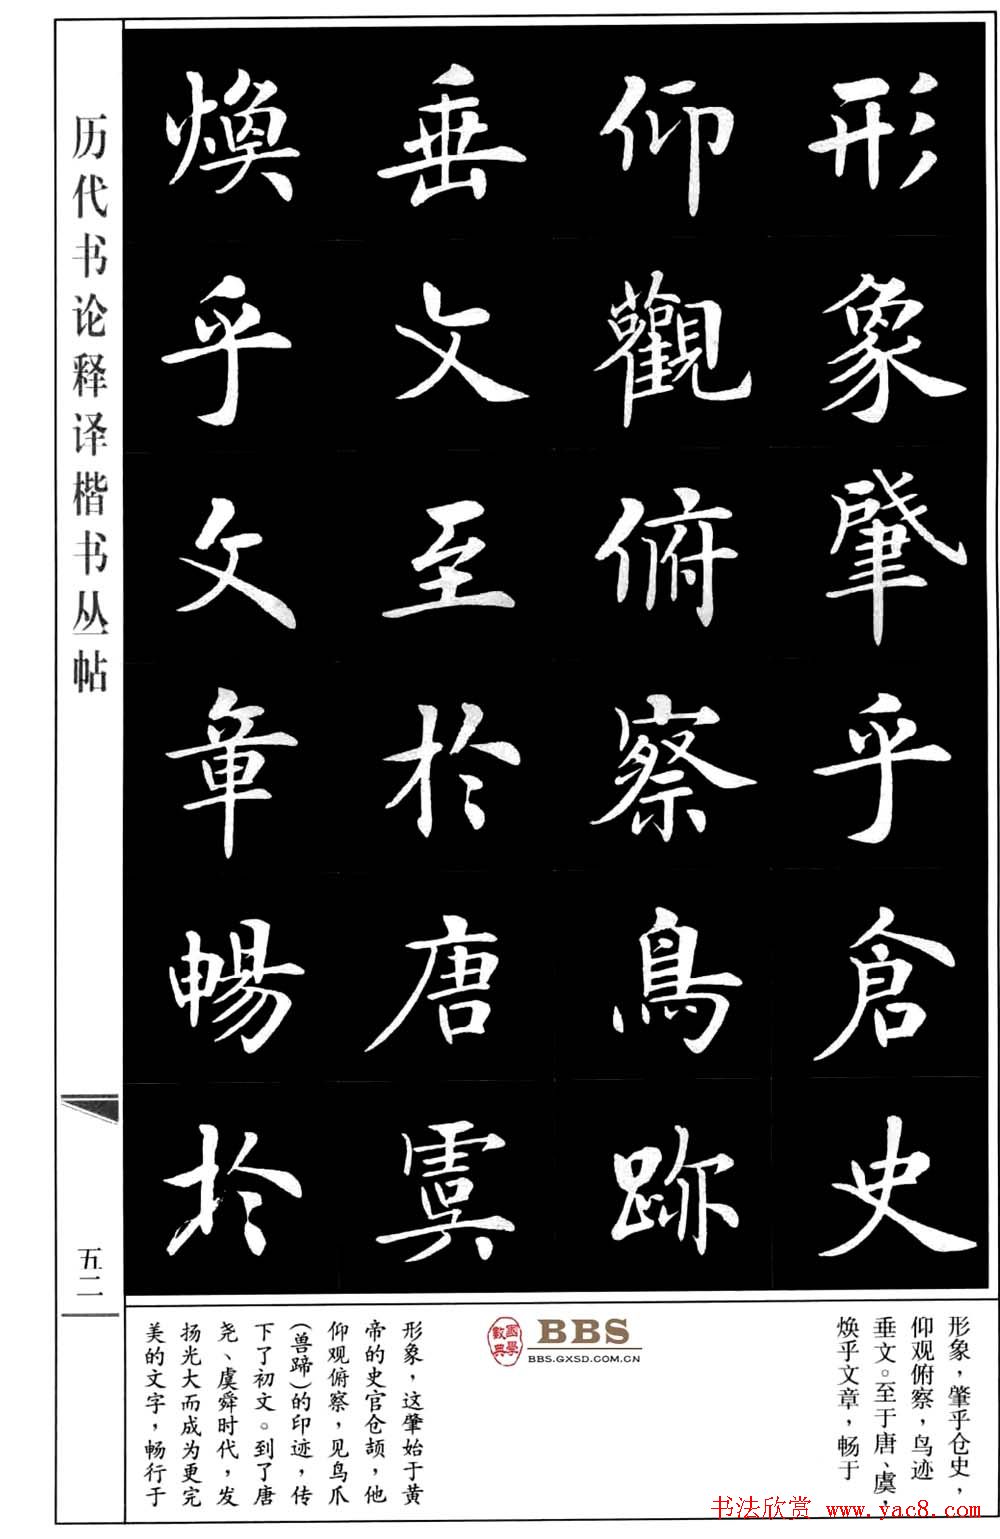 形象肇乎倉史
仰觀俯察鳥跡
垂文至於唐虞
煥乎文章暢於
历代书论释译楷书丛帖
五二
形象，肇乎仓史，
仰观俯察，鸟迹
垂文。至于唐、虞，
焕乎文章，畅于
國學
數典
BBS
BBS.GXSD.COM.CN
形象，这肇始于黄
帝的史官仓颉，他
仰观俯察，见鸟爪
（兽蹄）的印迹，传
下了初文。到了唐
尧、虞舜时代，发
扬光大而成为更完
美的文字，畅行于
书法欣赏 www.yac8.com